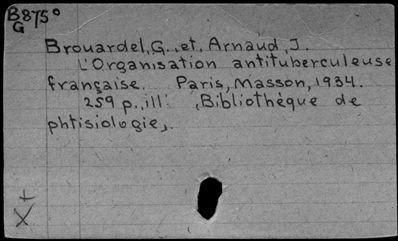 B875°
G
Brouardel, G., et, Arnaud, J.
L'Organisation antituberculeuse
française. Paris, Masson, 1934.
259 p., ill. (Bibliothèque de
phtisiologie).
+
X